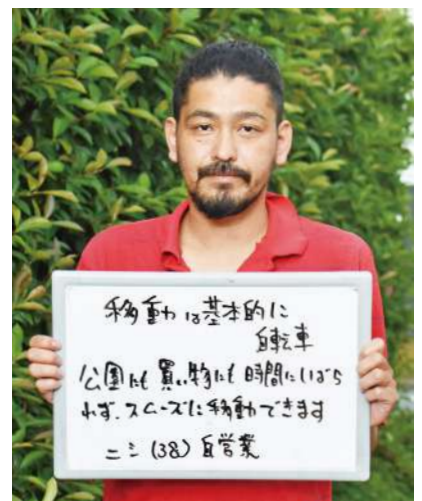 移動は基本的に
自転車
公園にも買い物にも時間にしばら
れず、スムーズに移動できます
ニシ(38)自営業